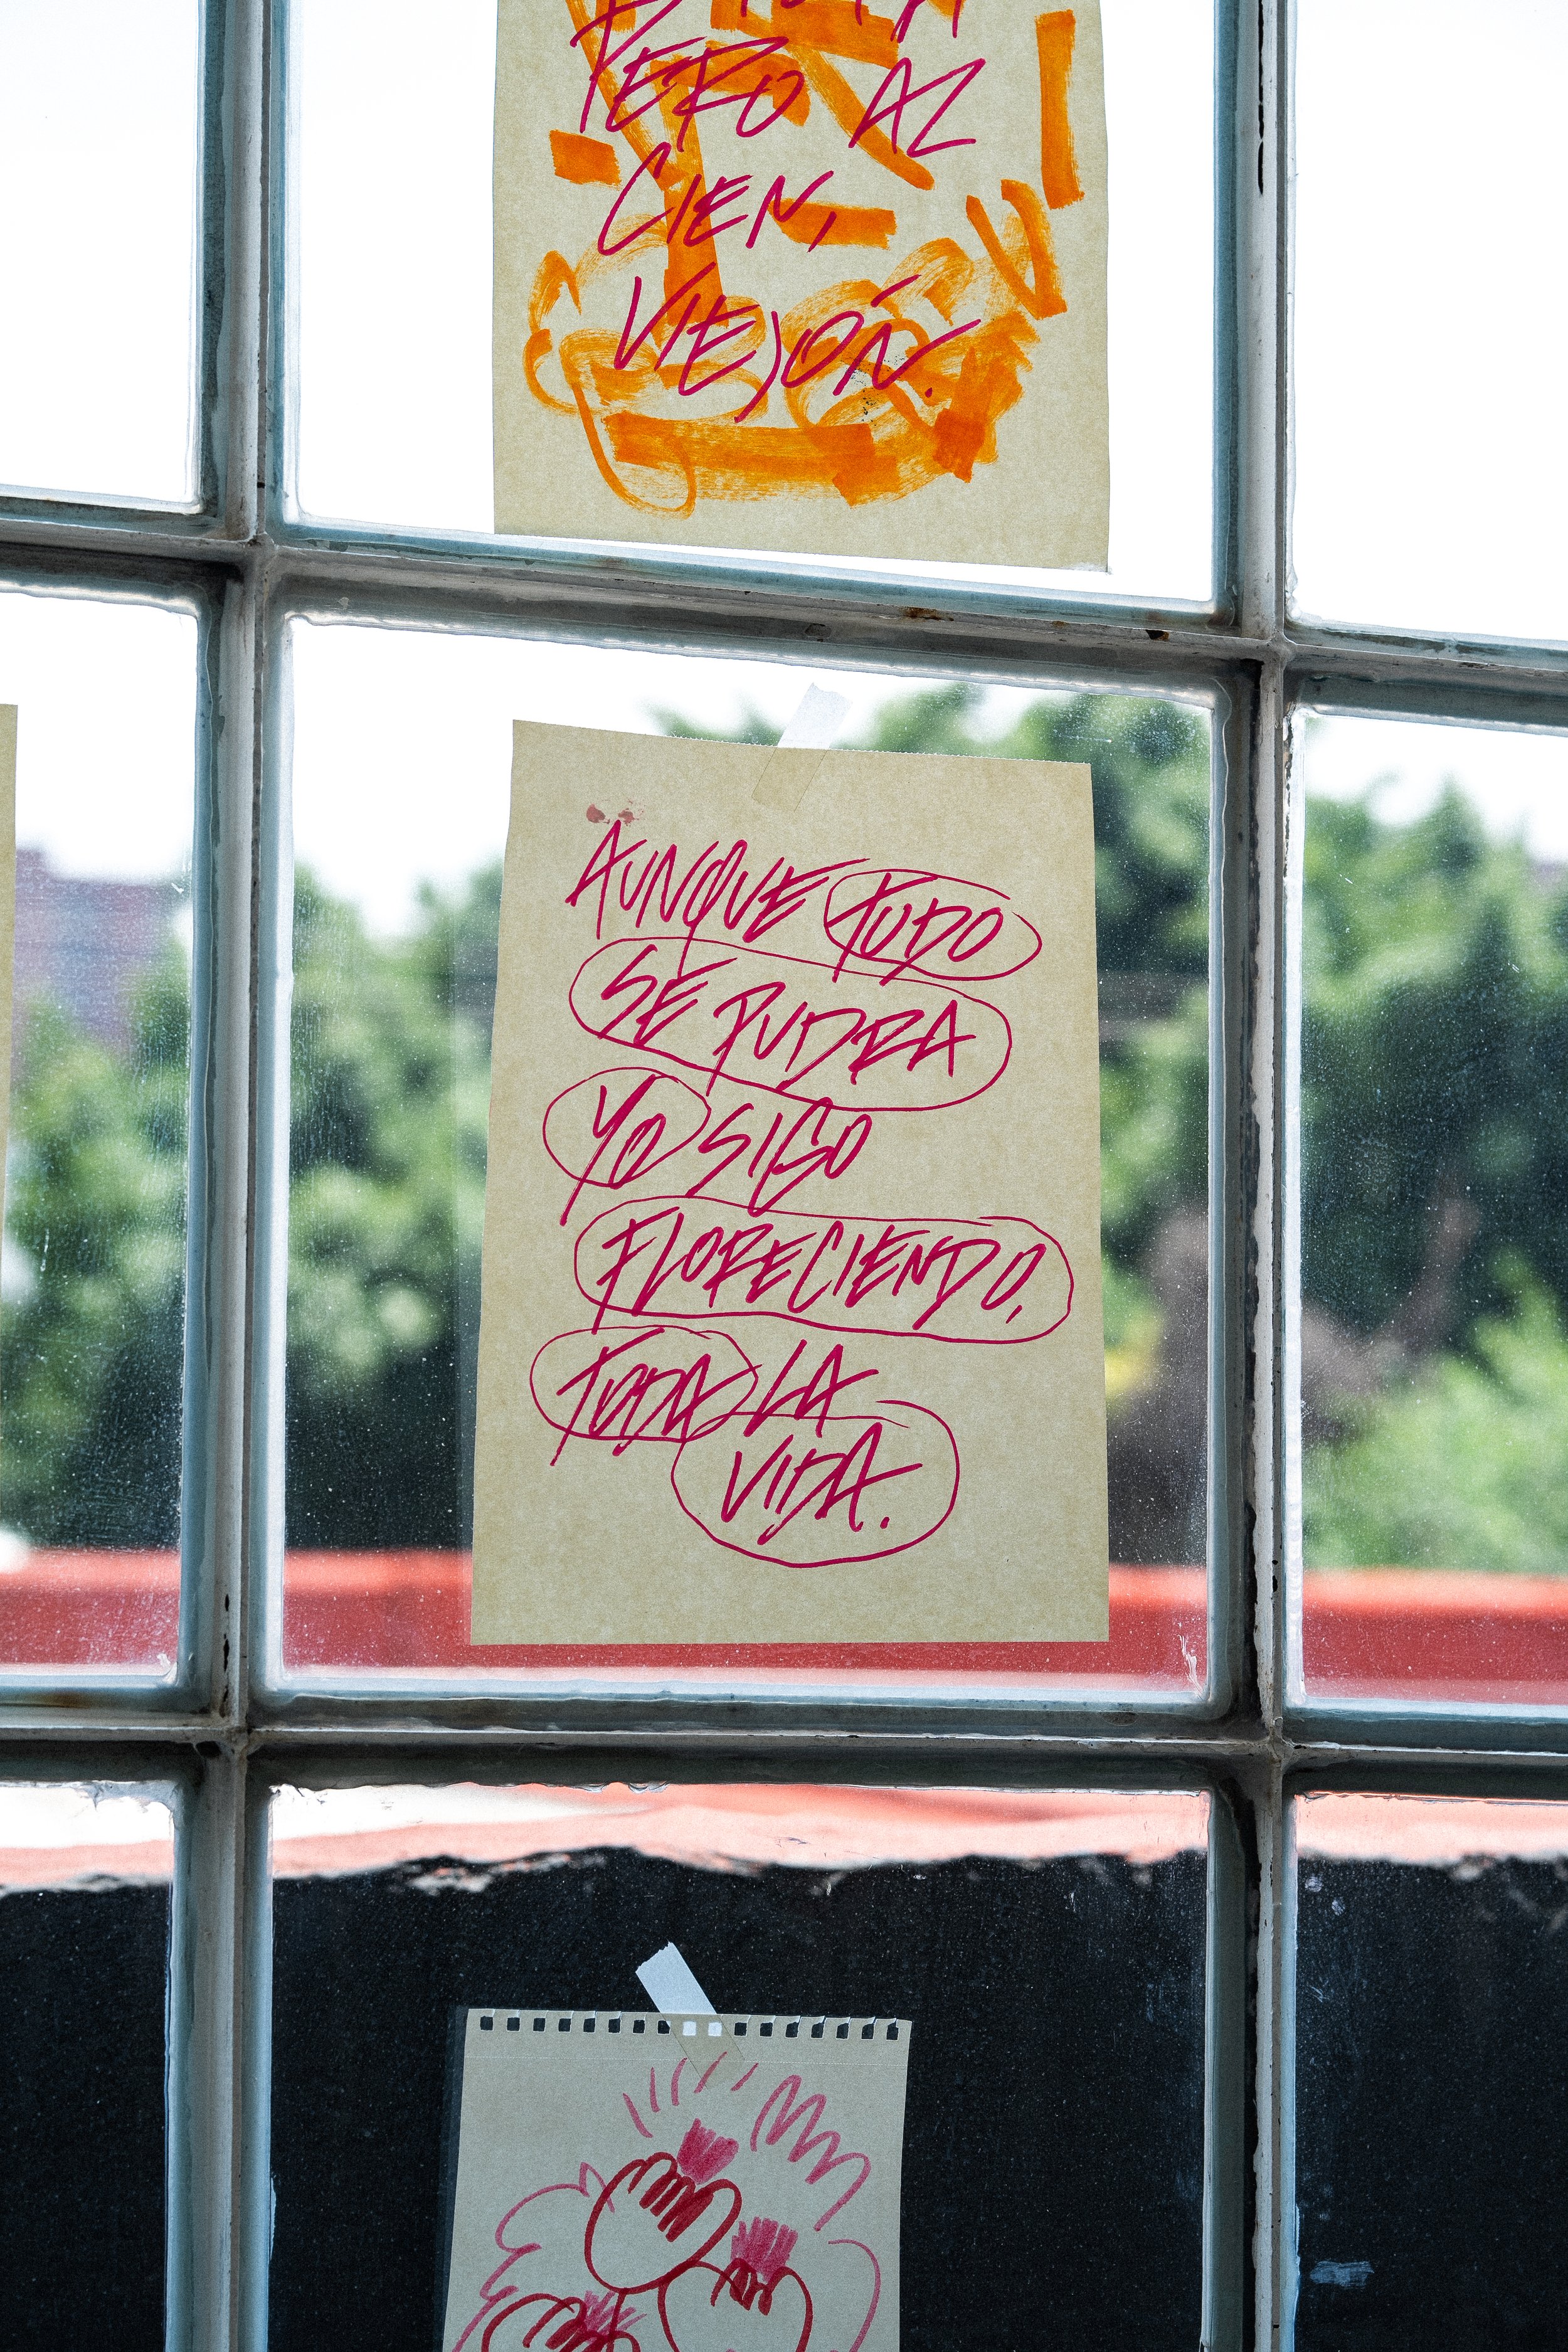 PERO AZ
CIEN,
VIEJÓN.
AUNQUE TODO
SE PUDRA
YO SIGO
FLORECIENDO,
TODA LA
VIDA.